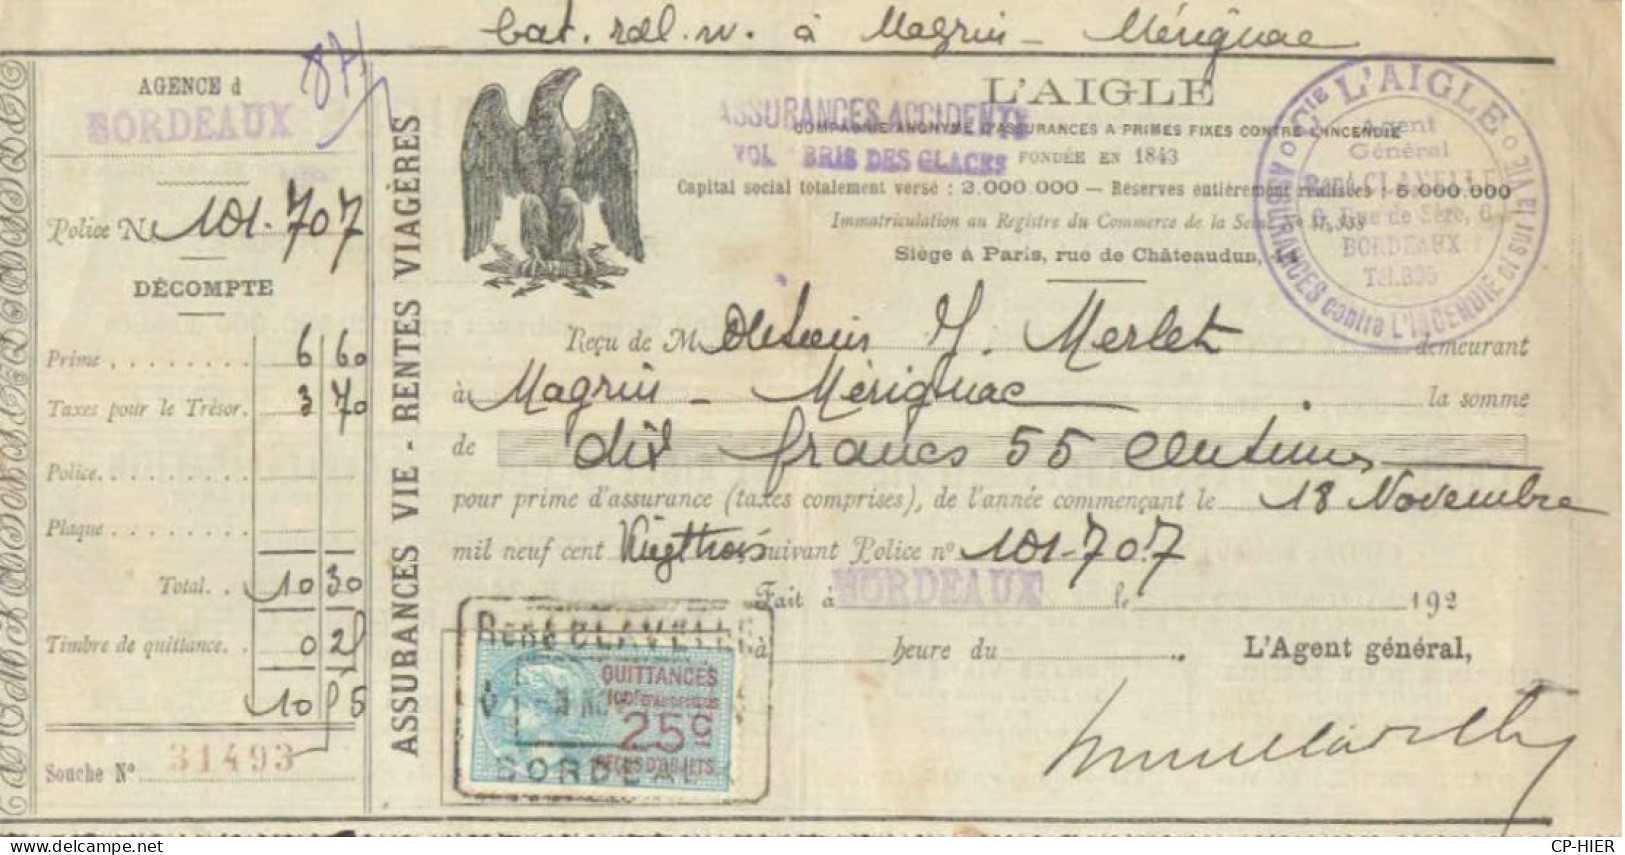 à Magrin - Mérignac
AGENCE d
BORDEAUX
Police N° 101.707
DÉCOMPTE
Prime 6 60
Taxes pour le Trésor. 3 70
Police.
Plaque
Total. 10 30
Timbre de quittance. 0 25
10 55
Souche N° 31493
ASSURANCES VIE - RENTES VIAGÈRES
L'AIGLE
ASSURANCES ACCIDENTS
COMPAGNIE ANONYME D'ASSURANCES A PRIMES FIXES CONTRE L'INCENDIE
VOL BRIS DES GLACES
FONDÉE EN 1843
Capital social totalement versé : 2.000.000 — Réserves entièrement réalisées : 5.000.000
Immatriculation au Registre du Commerce de la Seine
Siège à Paris, rue de Châteaudun, 44
Cie L'AIGLE
ASSURANCES contre L'INCENDIE et sur la VIE
Agent
Général
René CLAVELLE
6, Rue de Sèze, 6
BORDEAUX
Tél.
Reçu de M J. Merlet demeurant
à Magrin - Mérignac la somme
de dix francs 55 centimes
pour prime d'assurance (taxes comprises), de l'année commençant le 18 Novembre
mil neuf cent Vingt trois suivant Police n° 101-707
Fait à BORDEAUX le 192
à heure du
L'Agent général,
René CLAVELLE
QUITTANCES
25c
REÇUS D'OBJETS
BORDEAUX
CP-HIER